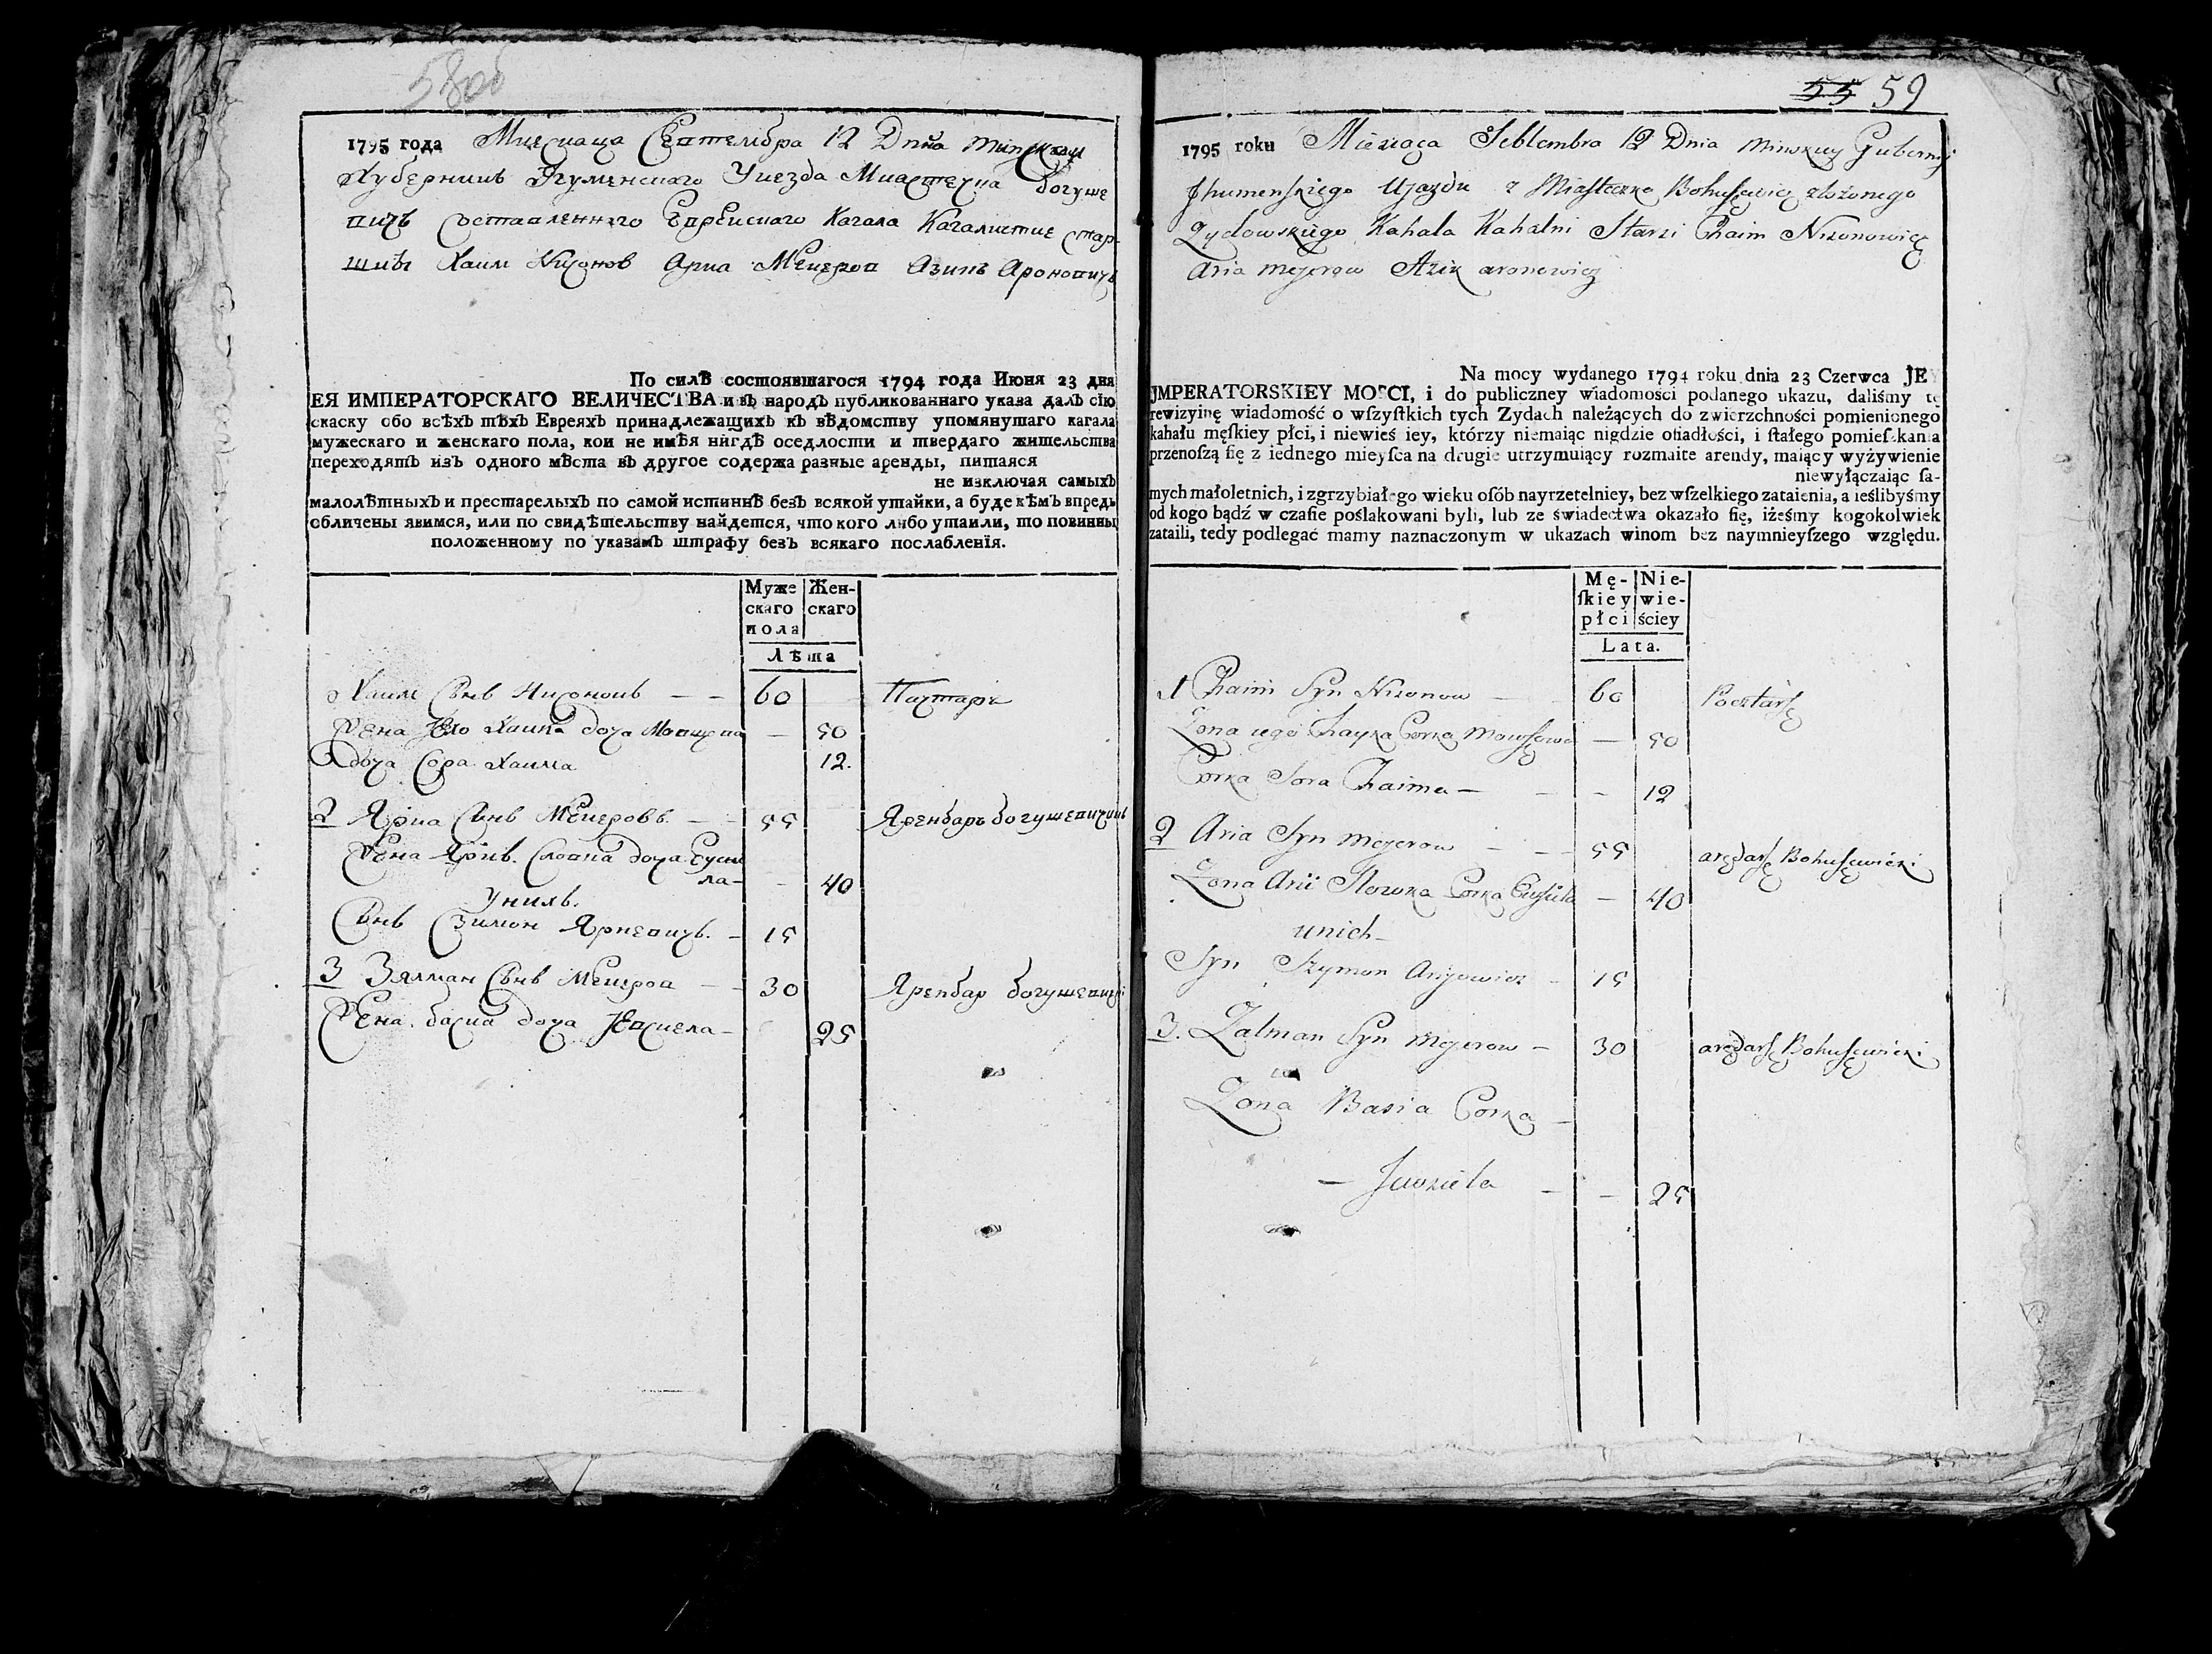 58об
1795 года Миесиаца Септембра 12 Дниа Минскаи
Губернииь Ягуменскаго Уиезда Миастечка Богуше
вичь Составленнаго Еврейскаго Кагала Кагалистие стар-
шиы Хаим Нисонов Ариа Меиеров Азикъ Ароновичъ
По силѣ состоявшагося 1794 года Июня 23 дня
ЕЯ ИМПЕРАТОРСКАГО ВЕЛИЧЕСТВА и въ народъ публикованнаго указа далъ сїю
скаску обо всѣхъ тѣхъ Евреяхъ принадлежащихъ къ вѣдомству упомянутаго кагала
мужескаго и женскаго пола, кои не имѣя нигдѣ оседлости и твердаго жительства
переходятъ изъ одного мѣста въ другое содержа разные аренды, питаяся
не изключая самыхъ
малолѣтныхъ и престарелыхъ по самой истиннѣ безъ всякой утайки, а буде кѣмъ впредь
обличены явимся, или по свидѣтельству найдется, что кого либо утаили, то повинны
положенному по указамъ штрафу безъ всякаго послабленїя.
Муже Жен-
скаго скаго
пола
Лѣта
Хаим Сынь Нисоновь — — 60 Почтарь
Жена Его Хаика доча Мовшова — 50
доча Сора Хаима 12.
2 Яриа Сынь Меиеровь. — 55 Ярендарь богушевичиь
Жена Яриь. Словка доча Еуси
ла — — 40
Унихь.
Сынь Сзимон Яриевичь. — 15
3 Зялман Сынь Меиеров — — 30 Ярендар богушевичи
Жена. басиа доча Ювзиела — 25
55 59
1795 roku Miesiaca Seblembra 12 Dnia Minskiey Guberny
Jhumenskiego Ujazdu z Miasteczka Bohusewicz złożonego
Zydowskiego Kahala Kahalni Starsi Chaim Nisonowicz
Aria mejerow Azik aronowicz
Na mocy wydanego 1794 roku dnia 23 Czerwca JEY
JMPERATORSKIEY MOŚCI, i do publiczney wiadomości podanego ukazu, daliśmy tę
rewizyinę wiadomość o wſzyſtkich tych Zydach należących do zwierzchności pomienionego
kahału męſkiey płci, i niewieś iey, którzy niemaiąc nigdzie oſiadłości, i ſtałego pomieſzkania
przenoſzą ſię z iednego mieyſca na drugie utrzymuiący rozmaite arendy, maiący wyżywienie
niewyłączaiąc ſa-
mych małoletnich, i zgrzybiałego wieku oſób nayrzetelniey, bez wſzelkiego zataienia, a ieślibyśmy
od kogo bądź w czaſie poślakowani byli, lub ze świadectwa okazało ſię, iżeśmy kogokolwiek
zataili, tedy podlegać mamy naznaczonym w ukazach winom bez naymnieyſzego względu.
Mę- Nie-
ſkiey wie-
płci ściey
Lata.
1 Chaim Syn Nisonow — 60 Pocztarz
Zona iego Chayka Corka Mowszowa — 50
Corka Sora Chaima — — — 12
2 Aria Syn mejerow — — 55 arędarz Bohusewicki
Zona Arii Slowka Corka Eusiela — 40
unich —
Syn Szymon Aryowicz — 15
3. Zalman Syn Mejerow — 30 arędarz Bohusewicki
Zona Basia Corka —
— Jewziela — — 25